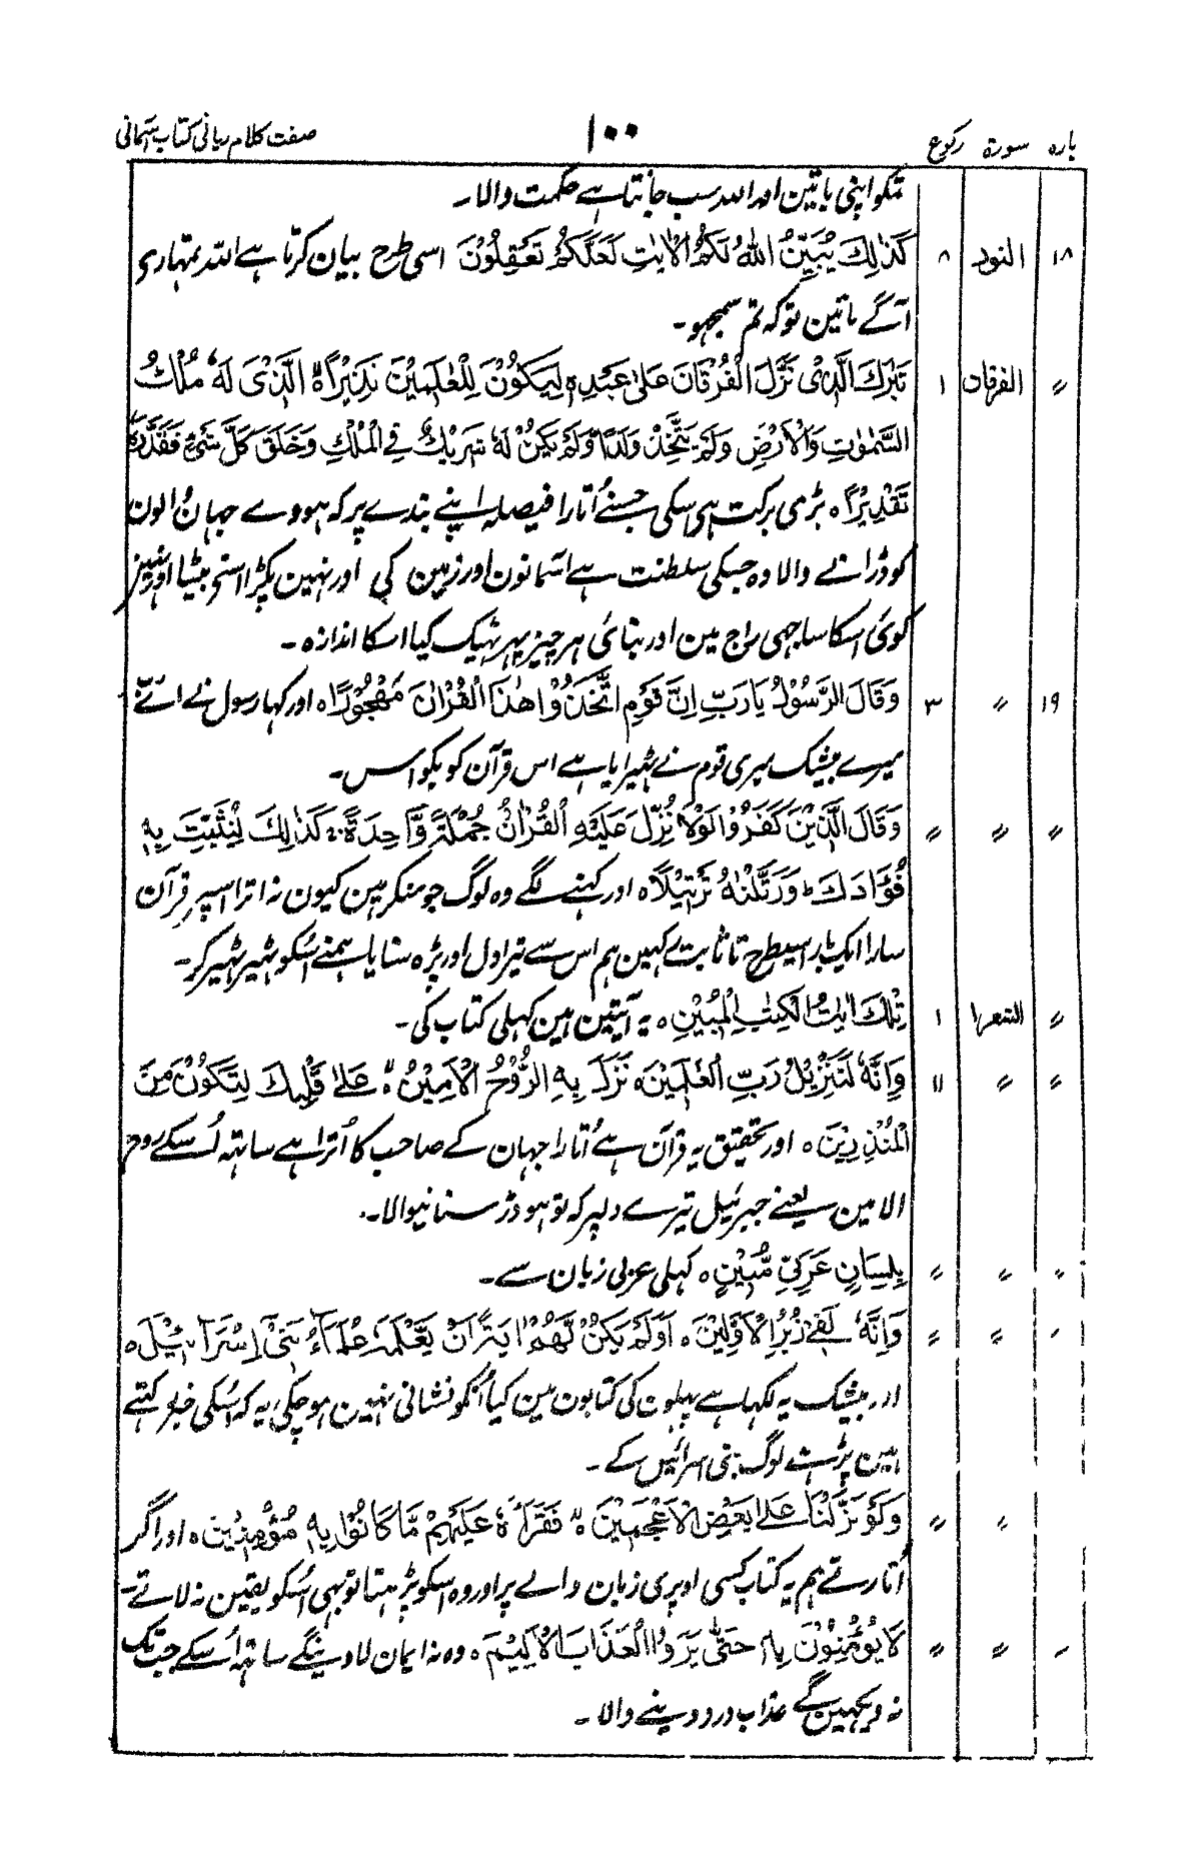 پارہ سورۃ رکوع ۱۰۰ صفت کلام ربانی کتاب آسمانی
تمکو اپنی باتین اور اللہ سب جانتا ہے حکمت والا۔
۱۸ النور ۸ كَذٰلِكَ يُبَيِّنُ اللّٰهُ لَكُمُ الْاٰيٰتِ لَعَلَّكُمْ تَعْقِلُوْنَ اسی طرح بیان کرتا ہے اللہ تمہاری
آگے باتین توکہ تم سمجہو۔
〃 الفرقان ۱ تَبٰرَكَ الَّذِىْ نَزَّلَ الْفُرْقَانَ عَلٰى عَبْدِهٖ لِيَكُوْنَ لِلْعٰلَمِيْنَ نَذِيْرًا ۙ الَّذِىْ لَهٗ مُلْكُ
السَّمٰوٰتِ وَالْاَرْضِ وَلَمْ يَتَّخِذْ وَلَدًا وَّلَمْ يَكُنْ لَّهٗ شَرِيْكٌ فِى الْمُلْكِ وَخَلَقَ كُلَّ شَىْءٍ فَقَدَّرَهٗ
تَقْدِيْرًا ہ بڑی برکت ہی اسکی جسنے اُتارا فیصلہ اپنے بندے پر کہ ہووے جہان والون
کو ڈرانے والا وہ جسکی سلطنت ہے آسمانون اور زمین کی اور نہین پکڑا اسنے بیٹا اور نہین
کوئی اسکا ساجہی راج مین اور بنائی ہر چیز پہر ٹہیک کیا اسکا اندازہ ۔
۱۹ 〃 ۳ وَقَالَ الرَّسُوْلُ يَارَبِّ اِنَّ قَوْمِى اتَّخَذُوْا هٰذَا الْقُرْاٰنَ مَهْجُوْرًا ہ اور کہا رسول نے اے رب
میرے بیشک میری قوم نے ٹہیرایا ہے اس قرآن کو بکواس ۔
〃 〃 〃 وَقَالَ الَّذِيْنَ كَفَرُوْا لَوْلَا نُزِّلَ عَلَيْهِ الْقُرْاٰنُ جُمْلَةً وَّاحِدَةً ۚ كَذٰلِكَ لِنُثَبِّتَ بِهٖ
فُؤَادَكَ وَرَتَّلْنٰهُ تَرْتِيْلًا ہ اور کہنے لگے وہ لوگ جو منکر ہین کیون نہ اترا اسپر قرآن
سارا ایک بار اسیطرح تا ثابت رکہین ہم اس سے تیرا دل اور پڑہ سنایا ہمنے اسکو ٹہیر ٹہیر کر ۔
〃 الشعرا ۱ تِلْكَ اٰيٰتُ الْكِتٰبِ الْمُبِيْنِ ہ یہ آیتین ہین کہلی کتاب کی ۔
〃 〃 ۱۱ وَاِنَّهٗ لَتَنْزِيْلُ رَبِّ الْعٰلَمِيْنَ ہ نَزَلَ بِهِ الرُّوْحُ الْاَمِيْنُ ۙ عَلٰى قَلْبِكَ لِتَكُوْنَ مِنَ
الْمُنْذِرِيْنَ ہ اور تحقیق یہ قرآن ہے اُتارا جہان کے صاحب کا اُترا ہے ساتہہ اُسکے روح
الامین یعنے جبرئیل تیرے دلپر کہ تو ہو ڈر سنانیوالا ۔
〃 〃 〃 بِلِسَانٍ عَرَبِىٍّ مُّبِيْنٍ ہ کہلی عربی زبان سے ۔
〃 〃 〃 وَاِنَّهٗ لَفِىْ زُبُرِ الْاَوَّلِيْنَ ہ اَوَلَمْ يَكُنْ لَّهُمْ اٰيَةً اَنْ يَّعْلَمَهٗ عُلَمٰٓؤُا بَنِىْٓ اِسْرَآئِيْلَ ہ
اور بیشک یہ لکہا ہے پہلون کی کتابون مین کیا انکو نشانی نہین ہو چکی یہ کہ اسکی خبر رکہتے
ہین پڑہے لوگ بنی اسرائیل کے ۔
〃 〃 وَلَوْ نَزَّلْنٰهُ عَلٰى بَعْضِ الْاَعْجَمِيْنَ ۙ فَقَرَاَهٗ عَلَيْهِمْ مَّا كَانُوْا بِهٖ مُؤْمِنِيْنَ ہ اور اگر
اُتارتے ہم یہ کتاب کسی اوپری زبان والے پر اور وہ اسکو پڑہتا تو بہی اُسکو یقین نہ لاتے ۔
〃 〃 〃 لَا يُؤْمِنُوْنَ بِهٖ حَتّٰى يَرَوُا الْعَذَابَ الْاَلِيْمَ ہ وہ نہ ایمان لاوینگے ساتہہ اُسکے جب تک
نہ دیکہین گے عذاب درد دینے والا ۔